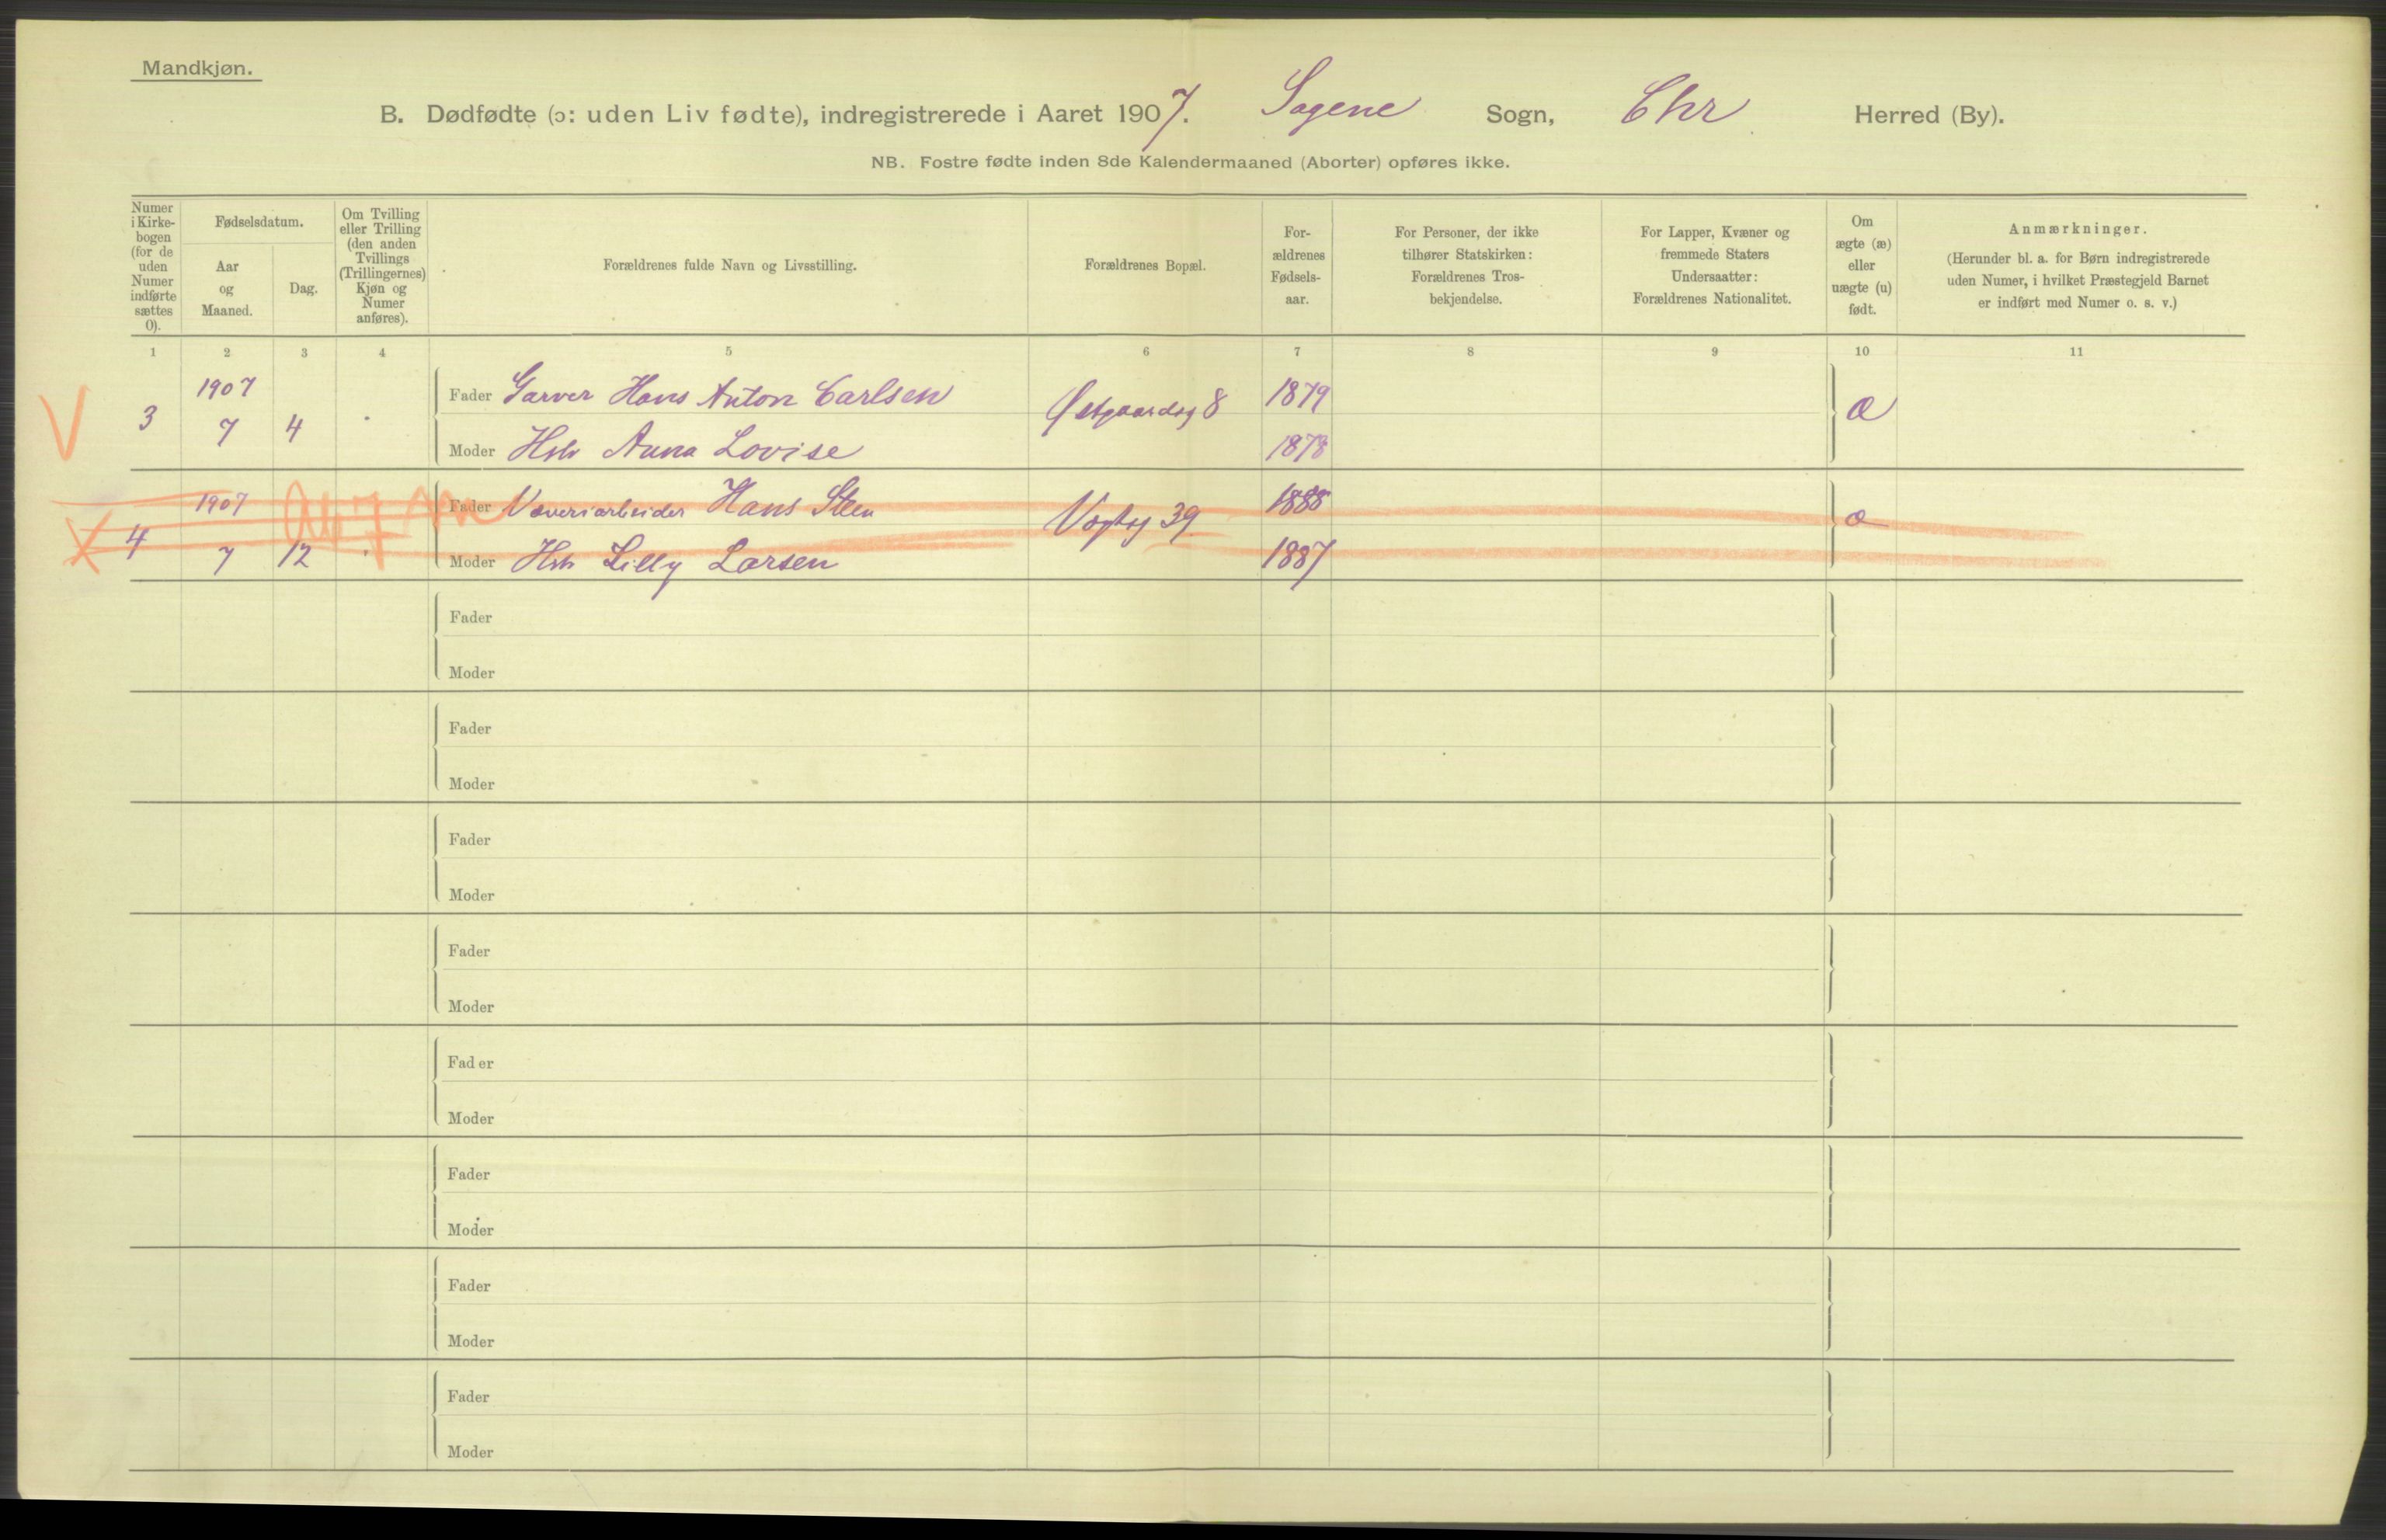 Mandkjøn.
B. Dødfødte (ɔ: uden Liv fødte), indregistrerede i Aaret 1907. Sagene Sogn, Chr Herred (By).
NB. Fostre fødte inden 8de Kalendermaaned (Aborter) opføres ikke.
Numer
i Kirke-
bogen
(for de
uden
Numer
indførte
sættes
0).
Fødselsdatum.
Aar
og
Maaned.
Dag.
Om Tvilling
eller Trilling
(den anden
Tvillings
(Trillingernes)
Kjøn og
Numer
anføres).
Forældrenes fulde Navn og Livsstilling.
Forældrenes Bopæl.
For-
ældrenes
Fødsels-
aar.
For Personer, der ikke
tilhører Statskirken:
Forældrenes Tros-
bekjendelse.
For Lapper, Kvæner og
fremmede Staters
Undersaatter:
Forældrenes Nationalitet.
Om
ægte (æ)
eller
uægte (u)
født.
Anmærkninger.
(Herunder bl. a. for Børn indregistrerede
uden Numer, i hvilket Præstegjeld Barnet
er indført med Numer o. s. v.)
1 2 3 4 5 6 7 8 9 10 11
V 3 1907 7 4
Fader Garver Hans Anton Carlsen Østgaardsg 8 1879 æ
Moder Hstr Anna Lovise 1878
X 4 1907 7 12
Fader Væveriarbeider Hans Steen Vogtsg 39 1888 æ
Moder Hstr Lilly Larsen 1887
Fader
Moder
Fader
Moder
Fader
Moder
Fader
Moder
Fader
Moder
Fader
Moder
Fader
Moder
Fader
Moder